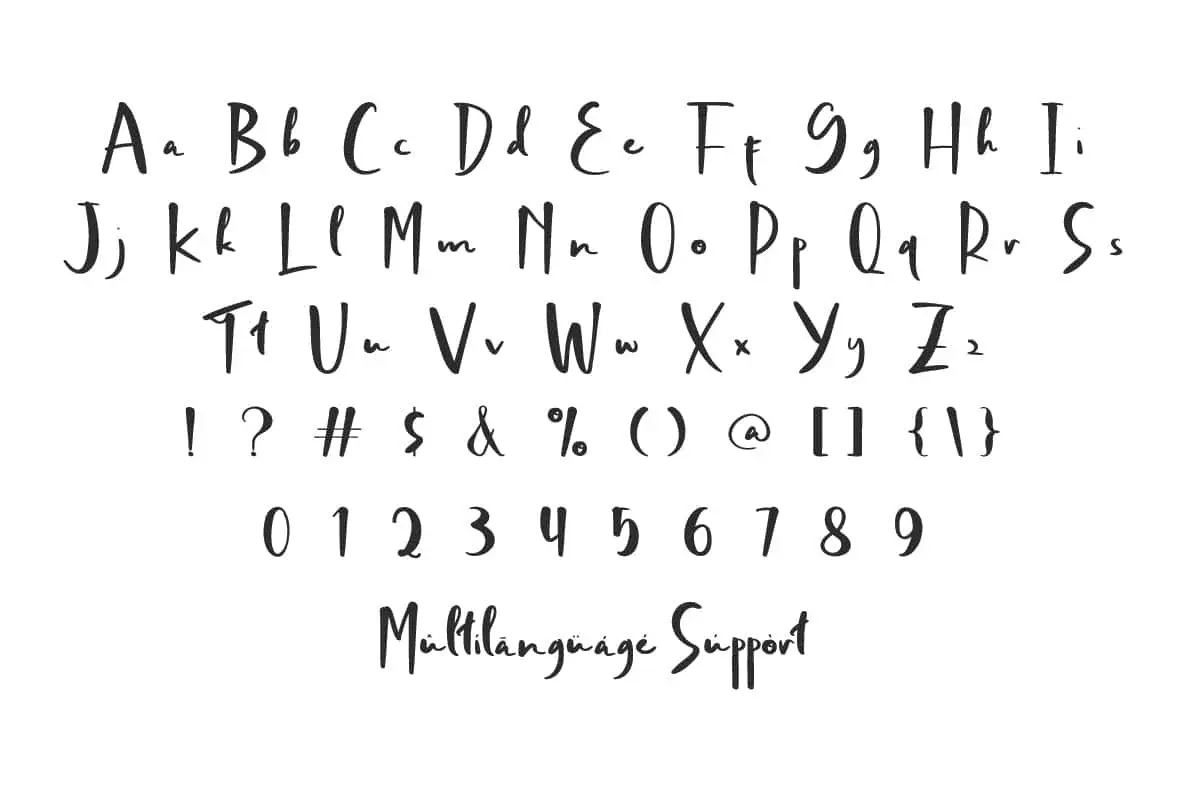 Aa Bb Cc Dd Ee Ff Gg Hh Ii
Jj Kk Ll Mm Nn Oo Pp Qq Rr Ss
Tt Uu Vv Ww Xx Yy Zz
! ? # $ & % ( ) @ [ ] { \ }
0 1 2 3 4 5 6 7 8 9
Mûltilāngüágé Súppòrt